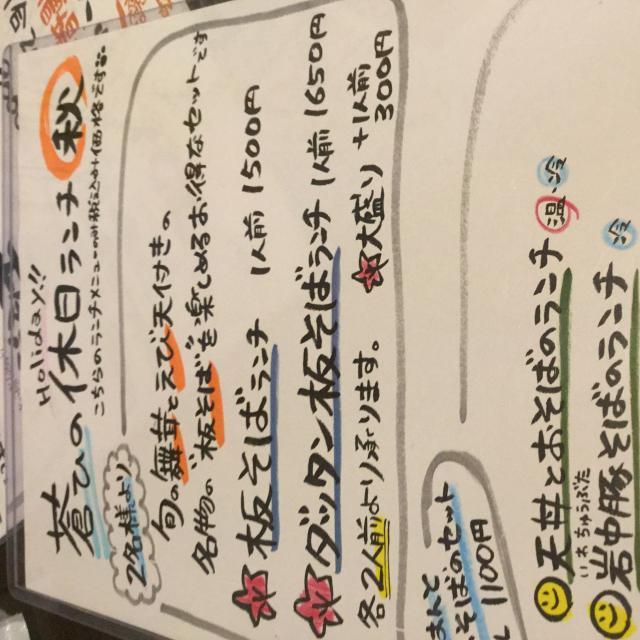 Holiday!!
蒼ひの休日ランチ 秋
こちらのランチメニューは税込み価格です。
2名様より
旬の舞茸とえび天付きの
名物の"板そば"を楽しめるお得なセットです
板そばランチ 1人前 1500円
ダッタン板そばランチ 1人前 1650円
各2人前より承ります。
大盛り +1人前 300円
そばのセット
1100円
天丼とおそばのランチ 温・冷
いわちゅうぶた
岩中豚そばのランチ 冷